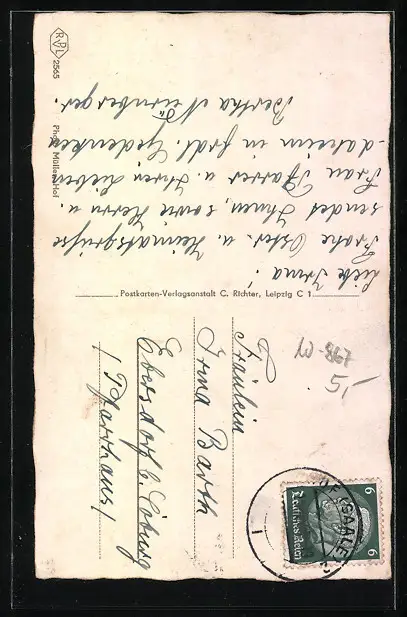 Liebe Irma!
Frohe Oster- u. Heimatsgrüße
sendet Ihnen, sowie Herrn u.
Frau Pfarrer u. Ihren Lieben
daheim in frdl. Gedenken
Bertha Nürnberger.
RVDL
2565
Phot. Müller, Hof
Postkarten-Verlagsanstalt C. Richter, Leipzig C 1
Fräulein
Irma Barth
Ebersdorf b. Coburg
/ Pfarrhaus /
W-867
5,-
(SAALE)
6 6
Deutsches Reich